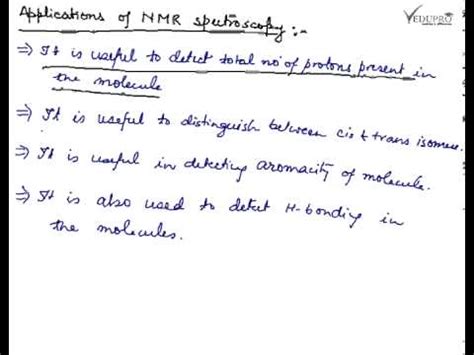 Applications of NMR spectroscopy:-
VEDUPRO
⇒ It is useful to detect total no of protons present in
the molecule
⇒ It is useful to distinguish between cis & trans isomers.
⇒ It is useful in detecting aromacity of molecule.
⇒ It is also used to detect H-bonding in
the molecules.